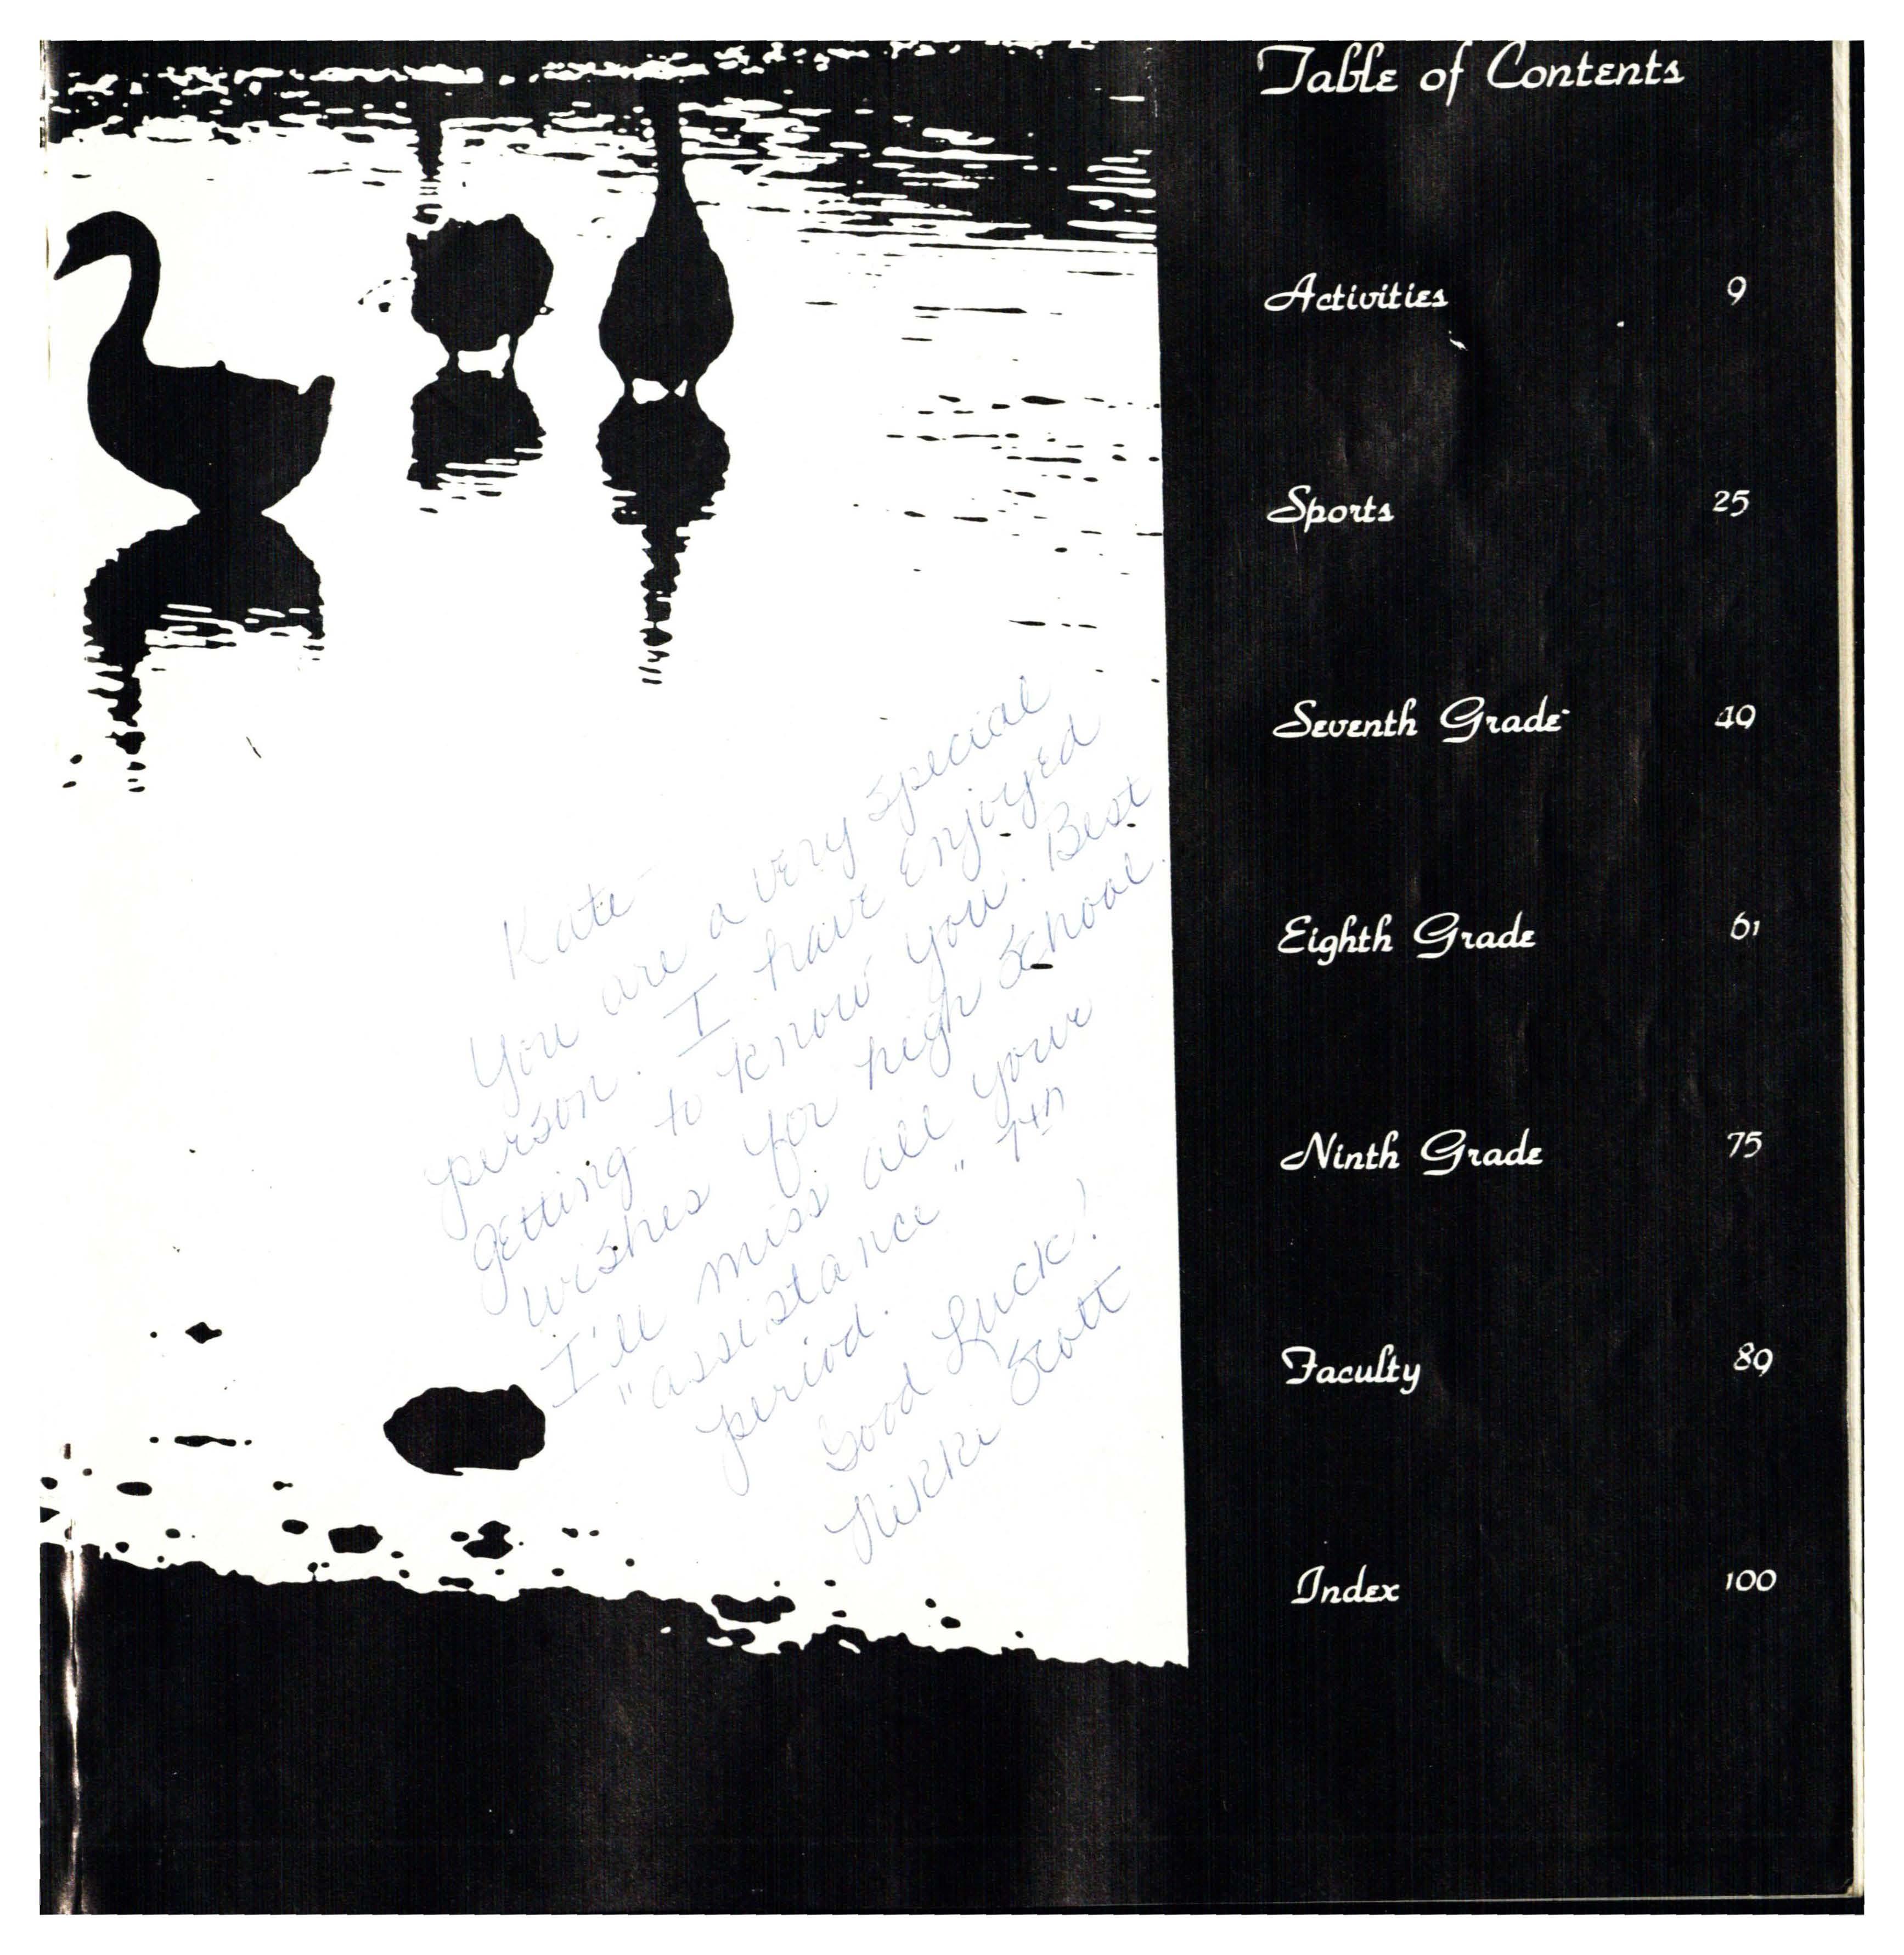 Table of Contents
Activities 9
Sports 25
Seventh Grade 40
Eighth Grade 61
Ninth Grade 75
Faculty 89
Index 100
Kate
You are a very special
person. I have enjoyed
getting to know you. Best
wishes for high school.
I'll miss all your
"assistance" 7th
period.
Good Luck!
Nikki Scott